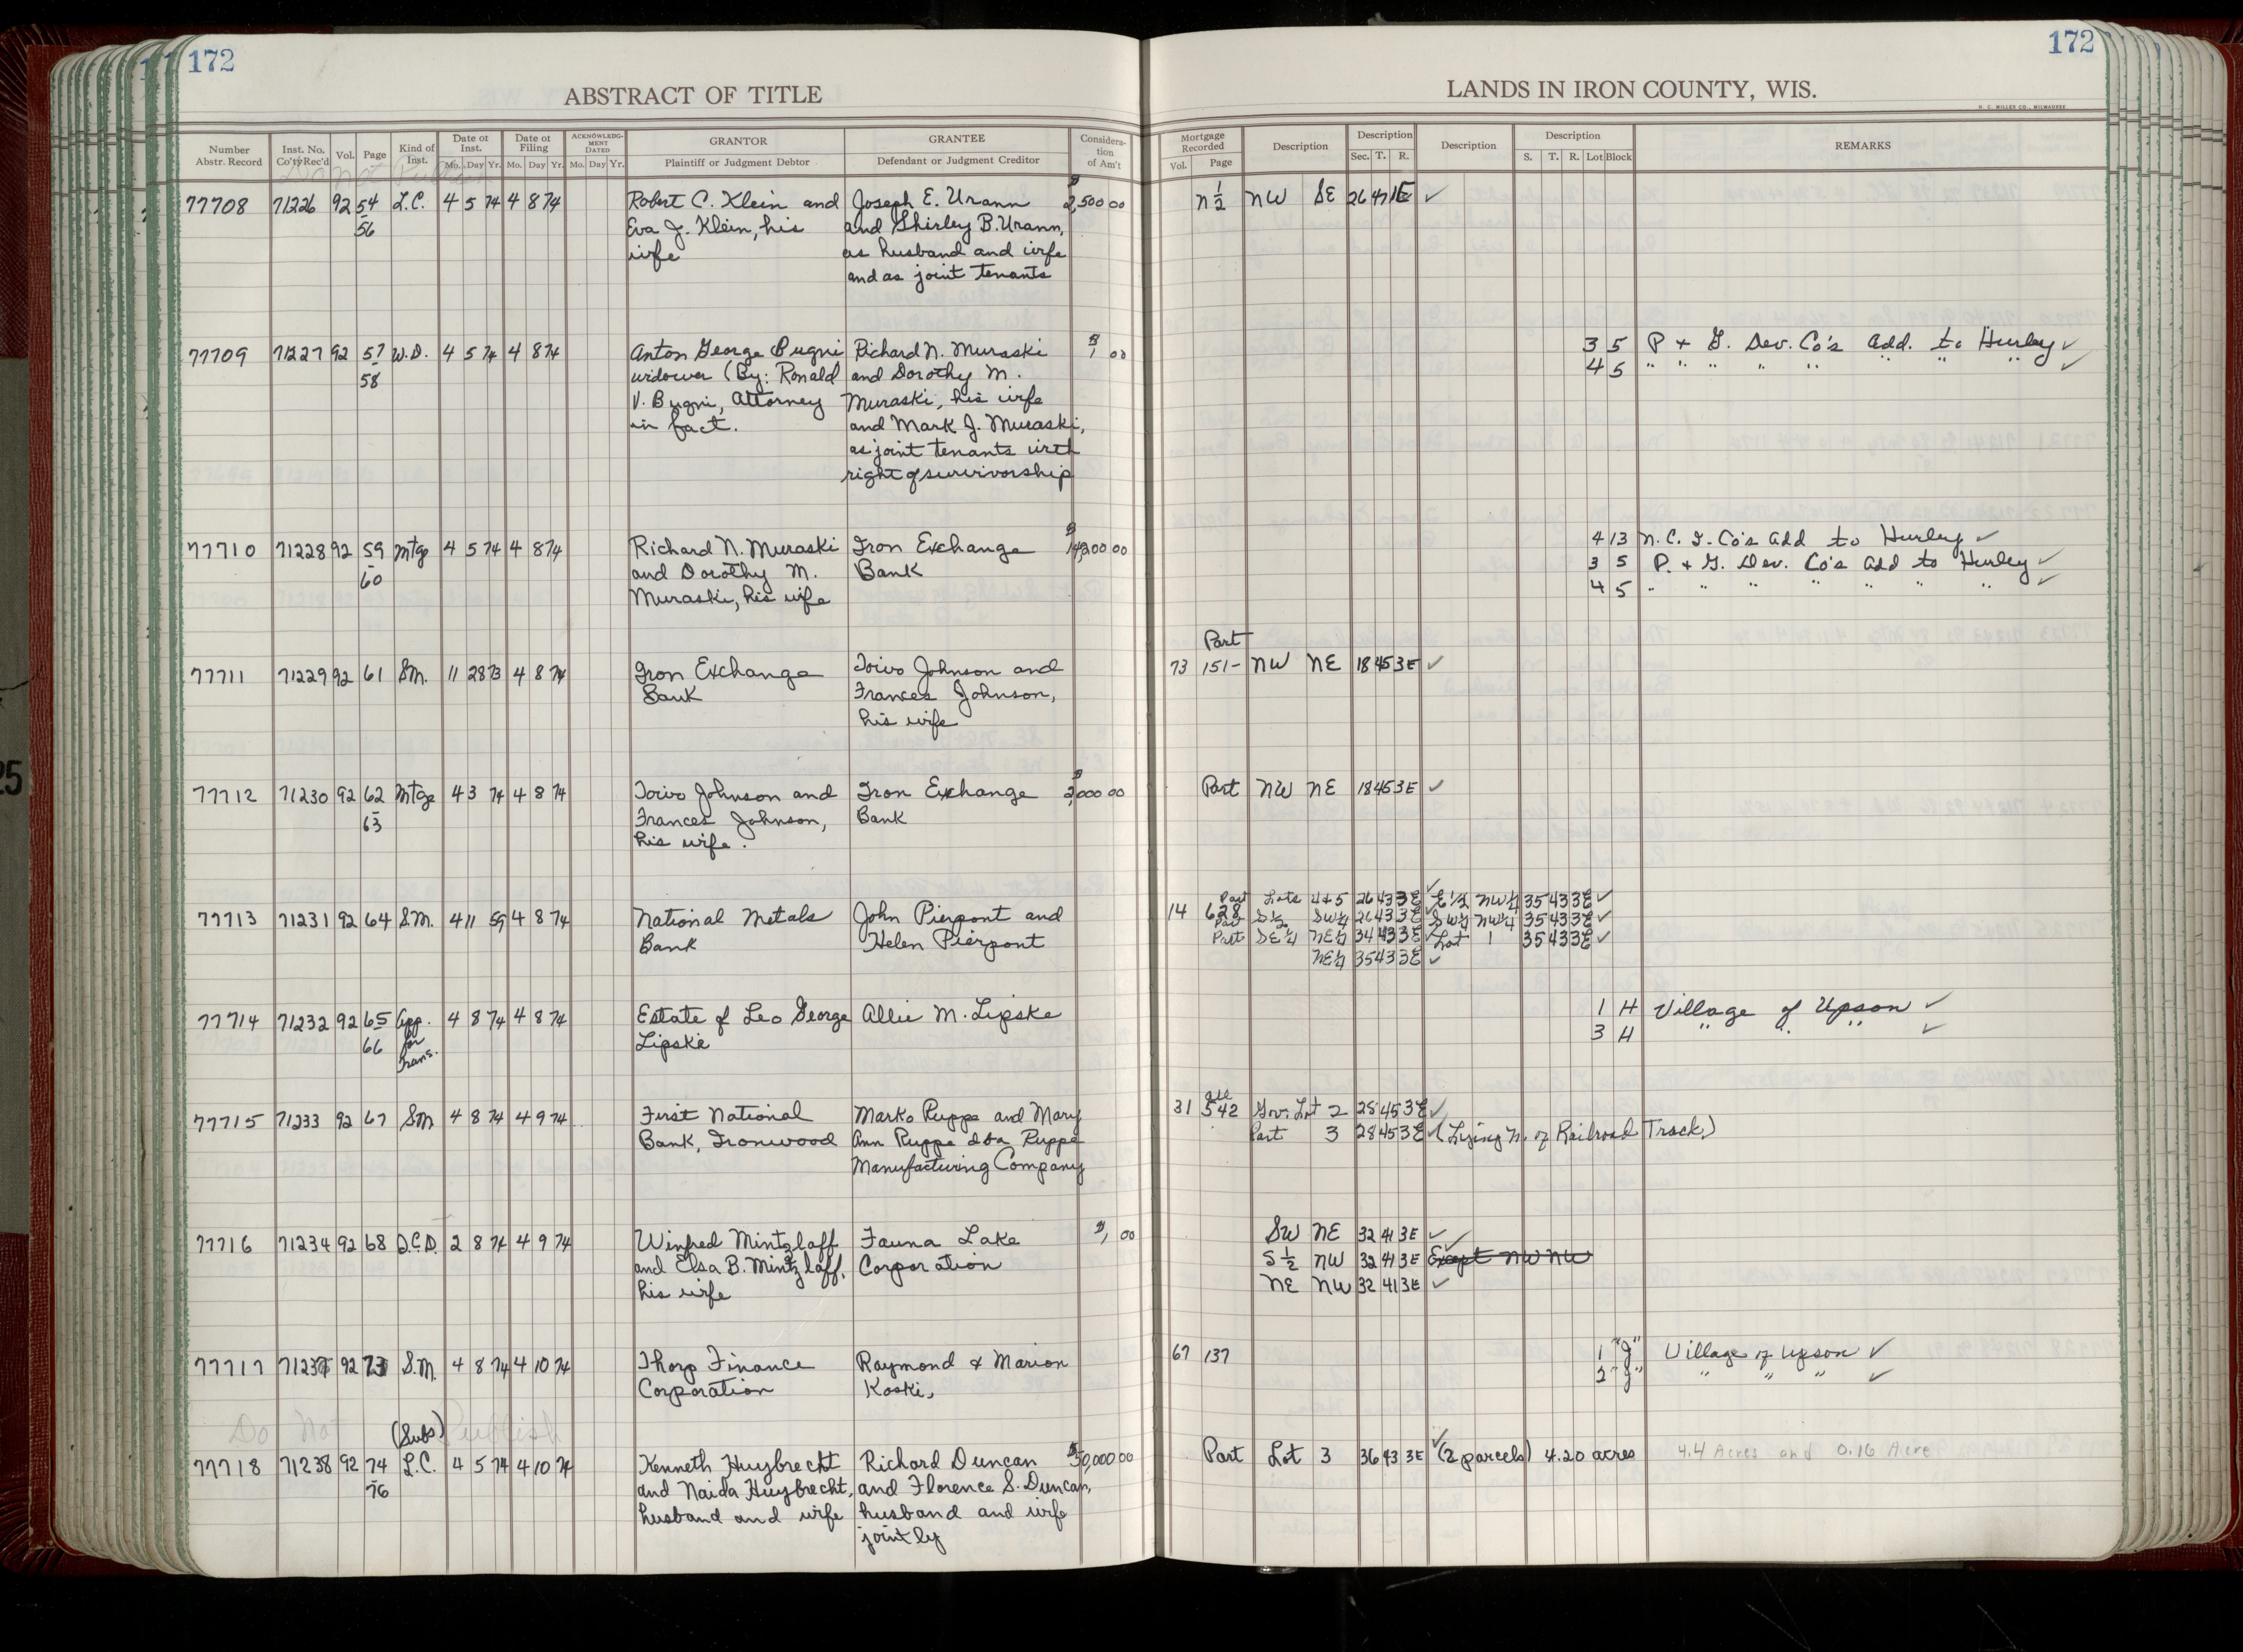 172
172
ABSTRACT OF TITLE
LANDS IN IRON COUNTY, WIS.
H. C. MILLER CO., MILWAUKEE
Number Abstr. Record
Inst. No. Co'ty Rec'd
Vol.
Page
Kind of Inst.
Date of Inst. Mo. Day Yr.
Date of Filing Mo. Day Yr.
ACKNOWLEDGMENT DATED Mo. Day Yr.
GRANTOR Plaintiff or Judgment Debtor
GRANTEE Defendant or Judgment Creditor
Consideration of Am't
Mortgage Recorded Vol. Page
Description
Description Sec. T. R.
Description
Description S. T. R. Lot Block
REMARKS
Do Not Publish
77708 71226 92 54 L.C. 4 5 74 4 8 74 Robert C. Klein and Joseph E. Urann $2,500 00 N 1/2 NW SE 26 47 1E ✓
56 Eva J. Klein, his and Shirley B. Urann,
wife as husband and wife
and as joint tenants
77709 71227 92 57 W.D. 4 5 74 4 8 74 Anton George Bugni Richard N. Muraski $1 00 3 5 P + G. Dev. Co's Add. to Hurley ✓
58 widower (By: Ronald and Dorothy M. 4 5 " " " " " " " " ✓
V. Bugni, Attorney Muraski, his wife
in fact. and Mark J. Muraski,
as joint tenants with
right of survivorship
77710 71228 92 59 Mtge 4 5 74 4 8 74 Richard N. Muraski Iron Exchange $14,200 00 4 13 N. C. I. Co's Add to Hurley ✓
60 and Dorothy M. Bank 3 5 P. + G. Dev. Co's Add to Hurley ✓
Muraski, his wife 4 5 " " " " " " " ✓
Part
77711 71229 92 61 S.M. 11 28 73 4 8 74 Iron Exchange Toivo Johnson and 73 151- NW NE 18 45 3E ✓
Bank Frances Johnson,
his wife
77712 71230 92 62 Mtge 4 3 74 4 8 74 Toivo Johnson and Iron Exchange $2,000 00 Part NW NE 18 45 3E ✓
63 Frances Johnson, Bank
his wife.
Part Lots 4+5 26 43 3E ✓ E 1/2 NW 1/4 35 43 3E ✓
77713 71231 92 64 S.M. 4 11 59 4 8 74 National Metals John Pierpont and 14 628 Part S 1/2 SW 1/4 26 43 3E ✓ SW 1/4 NW 1/4 35 43 3E ✓
Bank Helen Pierpont Part SE 1/4 NE 1/4 34 43 3E ✓ Lot 1 35 43 3E ✓
NE 1/4 35 43 3E ✓
77714 71232 92 65 App. 4 8 74 4 8 74 Estate of Leo George Allie M. Lipske 1 H Village of Upson ✓
66 for Trans. Lipske 3 H " " " ✓
All
77715 71233 92 67 S.M 4 8 74 4 9 74 First National Marko Ruppe and Mary 31 542 Gov. Lot 2 28 45 3E ✓
Bank, Ironwood Ann Ruppe dba Ruppe Part 3 28 45 3E ✓ (Lying N. of Railroad Track)
Manufacturing Company
77716 71234 92 68 Q.C.D. 2 8 74 4 9 74 Winfred Mintzlaff Fauna Lake $1, 00 SW NE 32 41 3E ✓ ✓
and Elsa B. Mintzlaff, Corporation S 1/2 NW 32 41 3E Except NW NW
his wife NE NW 32 41 3E ✓
77717 71237 92 73 S.M. 4 8 74 4 10 74 Thorp Finance Raymond & Marion 67 137 1 "J" Village of Upson ✓
Corporation Koski, 2 "J" " " " ✓
Do Not Publish
(Subs)
77718 71238 92 74 L.C. 4 5 74 4 10 74 Kenneth Huybrecht Richard Duncan $50,000 00 Part Lot 3 36 43 3E ✓ (2 parcels) 4.20 acres 4.4 Acres and 0.16 Acre
76 and Naida Huybrecht, and Florence S. Duncan,
husband and wife husband and wife
jointly